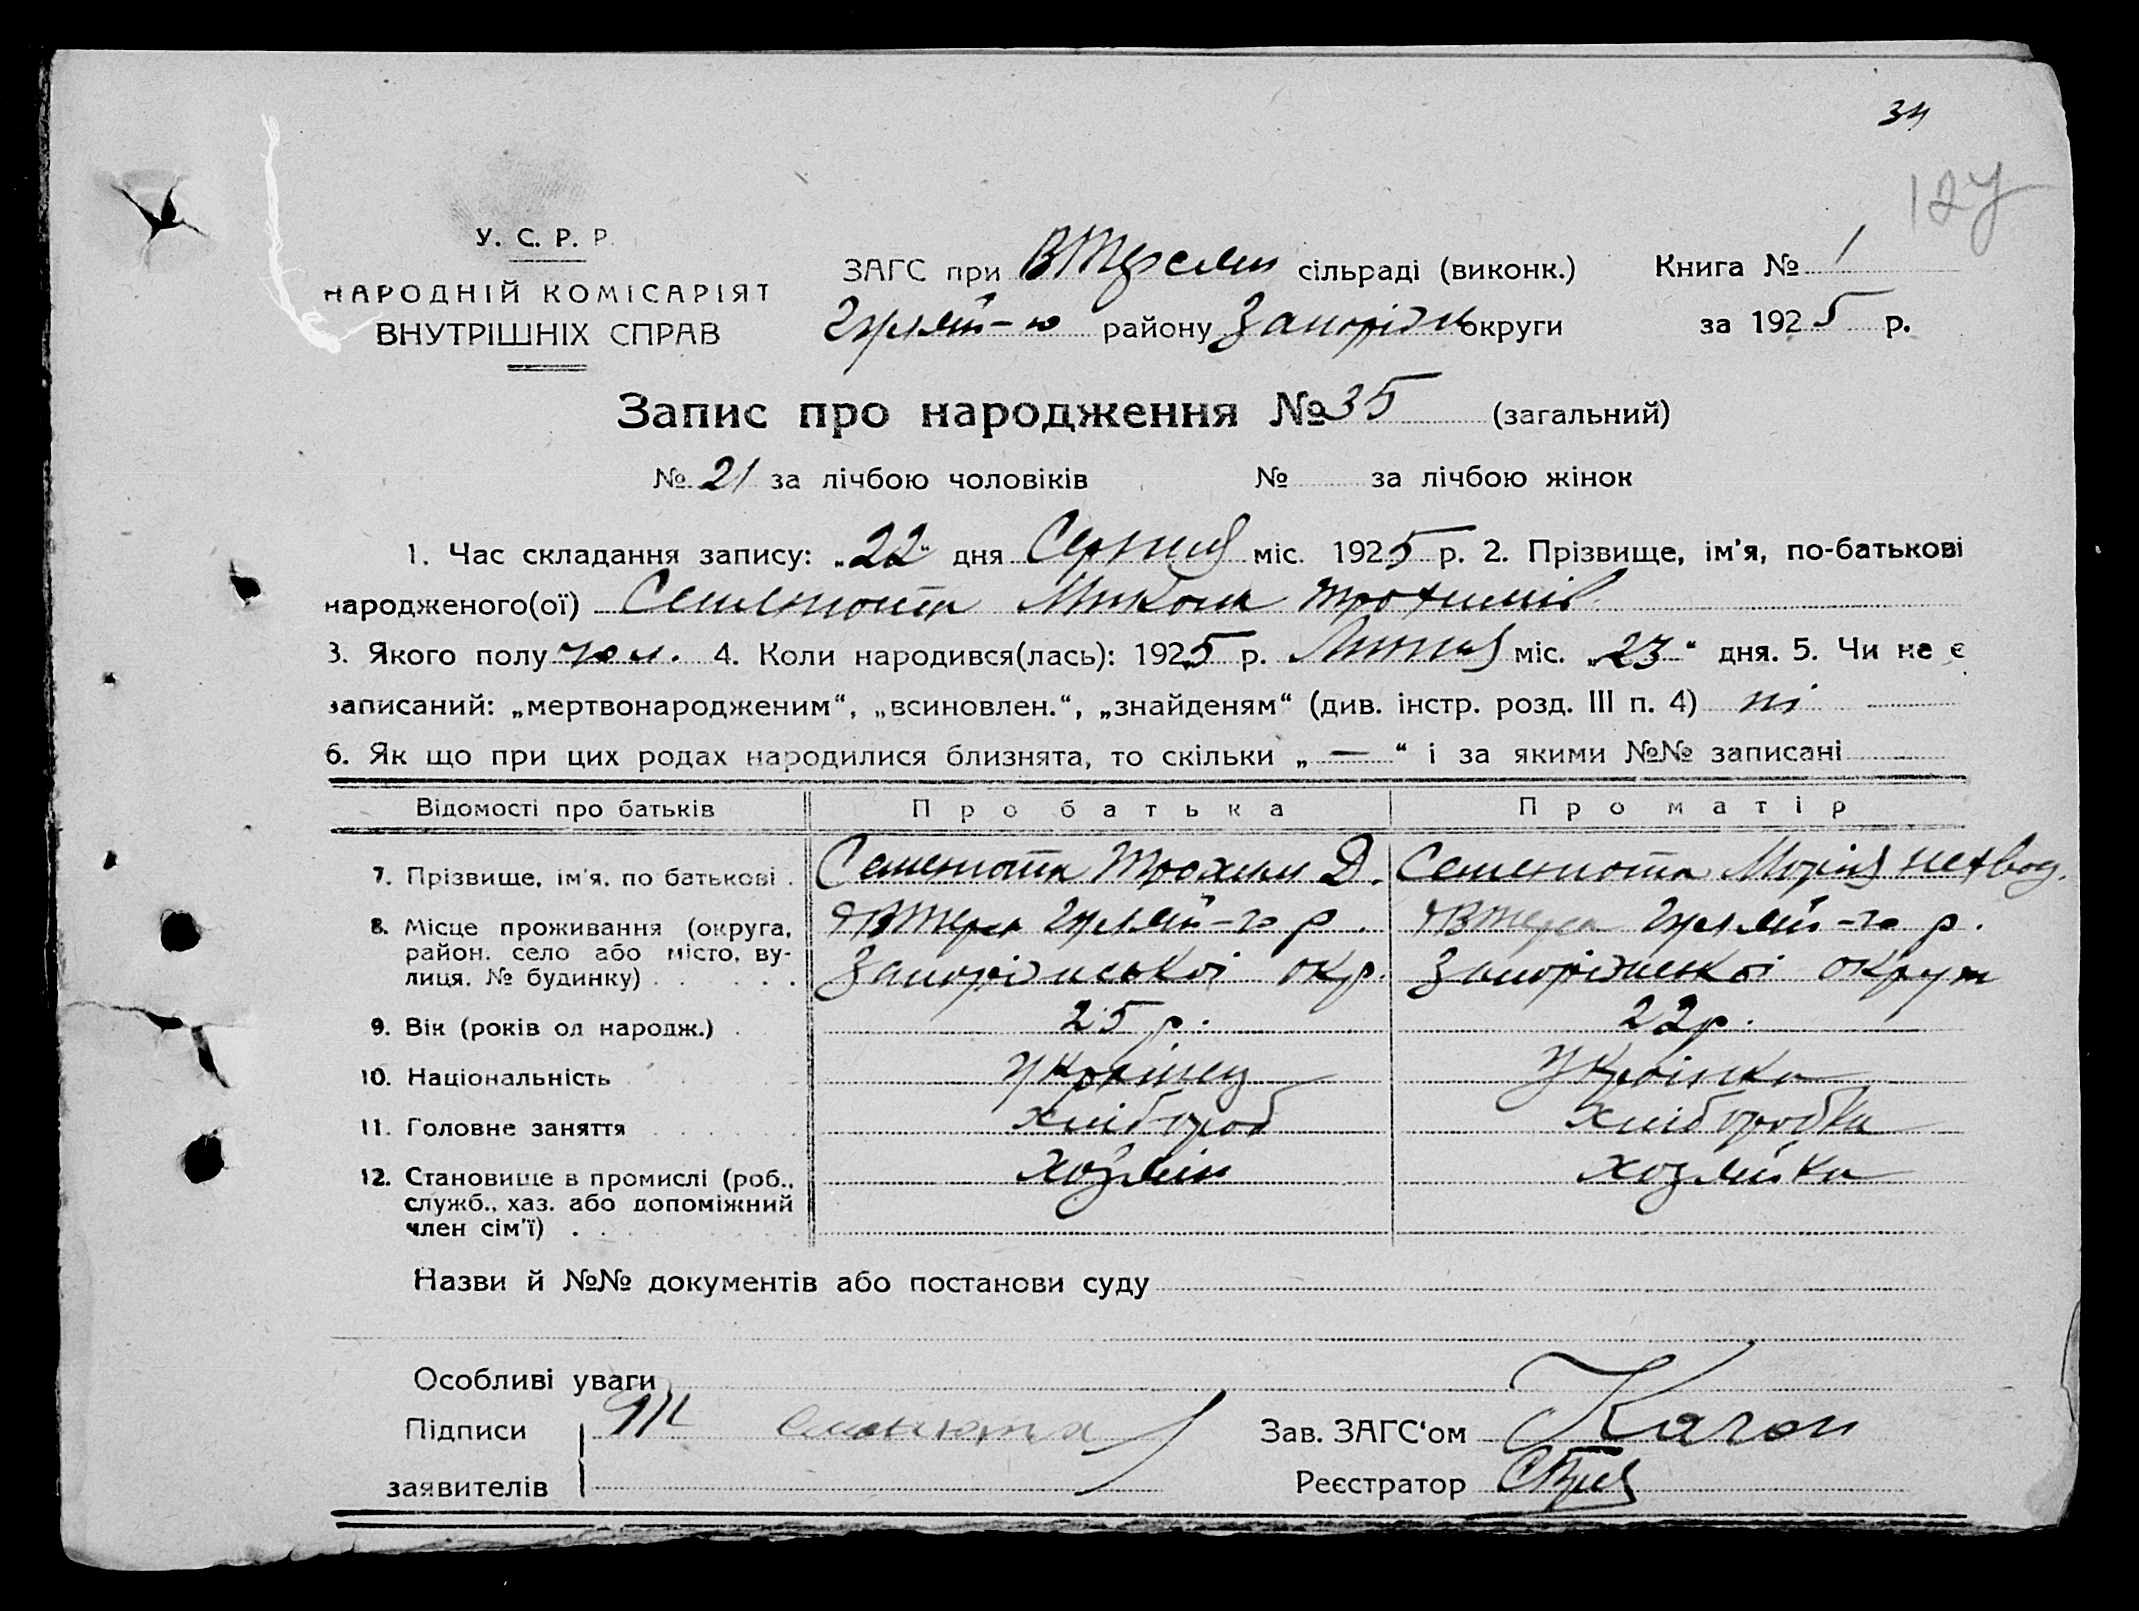 34
127
У. С. Р. Р.
НАРОДНІЙ КОМІСАРІЯТ
ВНУТРІШНІХ СПРАВ
ЗАГС при ВТерсян сільраді (виконк.)
Гуляй-ю району Запоріж округи
Книга № 1
за 1925 р.
Запис про народження № 35 (загальний)
№ 21 за лічбою чоловіків № за лічбою жінок
1. Час складання запису: „22" дня Серпня міс. 1925 р. 2. Прізвище, ім'я, по-батькові
народженого(ої) Семенюта Микола Трохимів
3. Якого полу чол. 4. Коли народився(лась): 1925 р. Липня міс. „23" дня. 5. Чи не є
записаний: „мертвонародженим", „всиновлен.", „знайденям" (див. інстр. розд. III п. 4) ні
6. Як що при цих родах народилися близнята, то скільки „—" і за якими №№ записані
Відомості про батьків Про батька Про матір
7. Прізвище, ім'я, по батькові . Семенюта Трохим Д. Семенюта Марія
8. Місце проживання (округа, район, село або місто, вулиця, № будинку) ВТерса Гуляй-го р. Запоріжської окр. ВТерса Гуляй-го р. Запоріжської округи
9. Вік (років од народж.) . 25 р. 22 р.
10. Національність Українец Українка
11. Головне заняття хлібороб хліборобка
12. Становище в промислі (роб., служб., хаз. або допоміжний член сім'ї) . хозяїн хозяйка
Назви й №№ документів або постанови суду
Особливі уваги
Підписи Т Семенюта
заявителів
Зав. ЗАГС'ом
Реєстратор